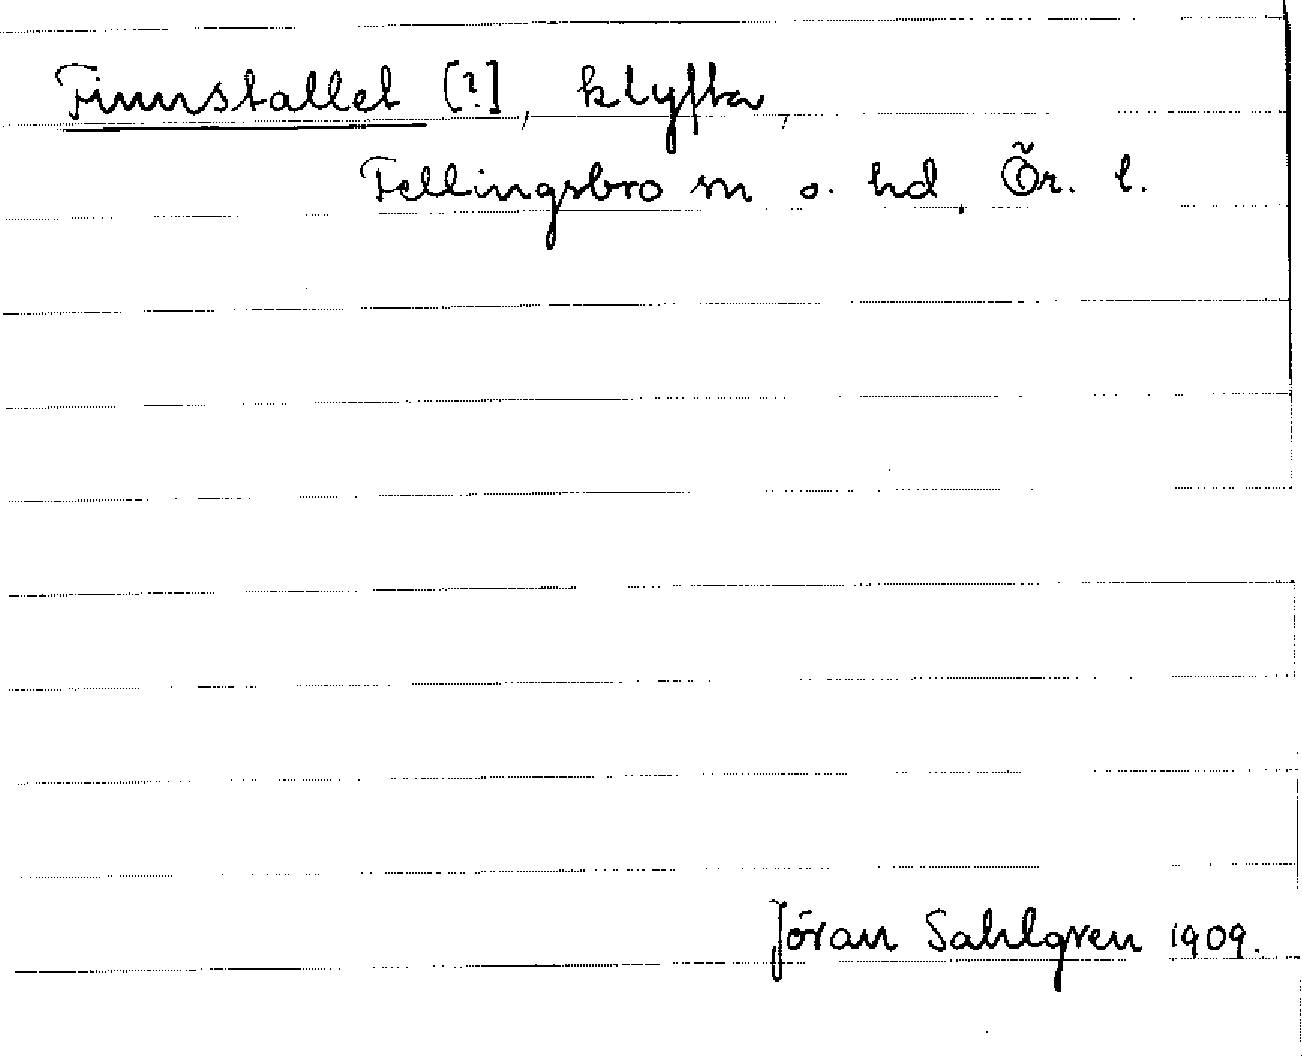 Finnstallet [?], klyfta,
Fellingsbro sn o. hd. Ör. l.
Jöran Sahlgren 1909.